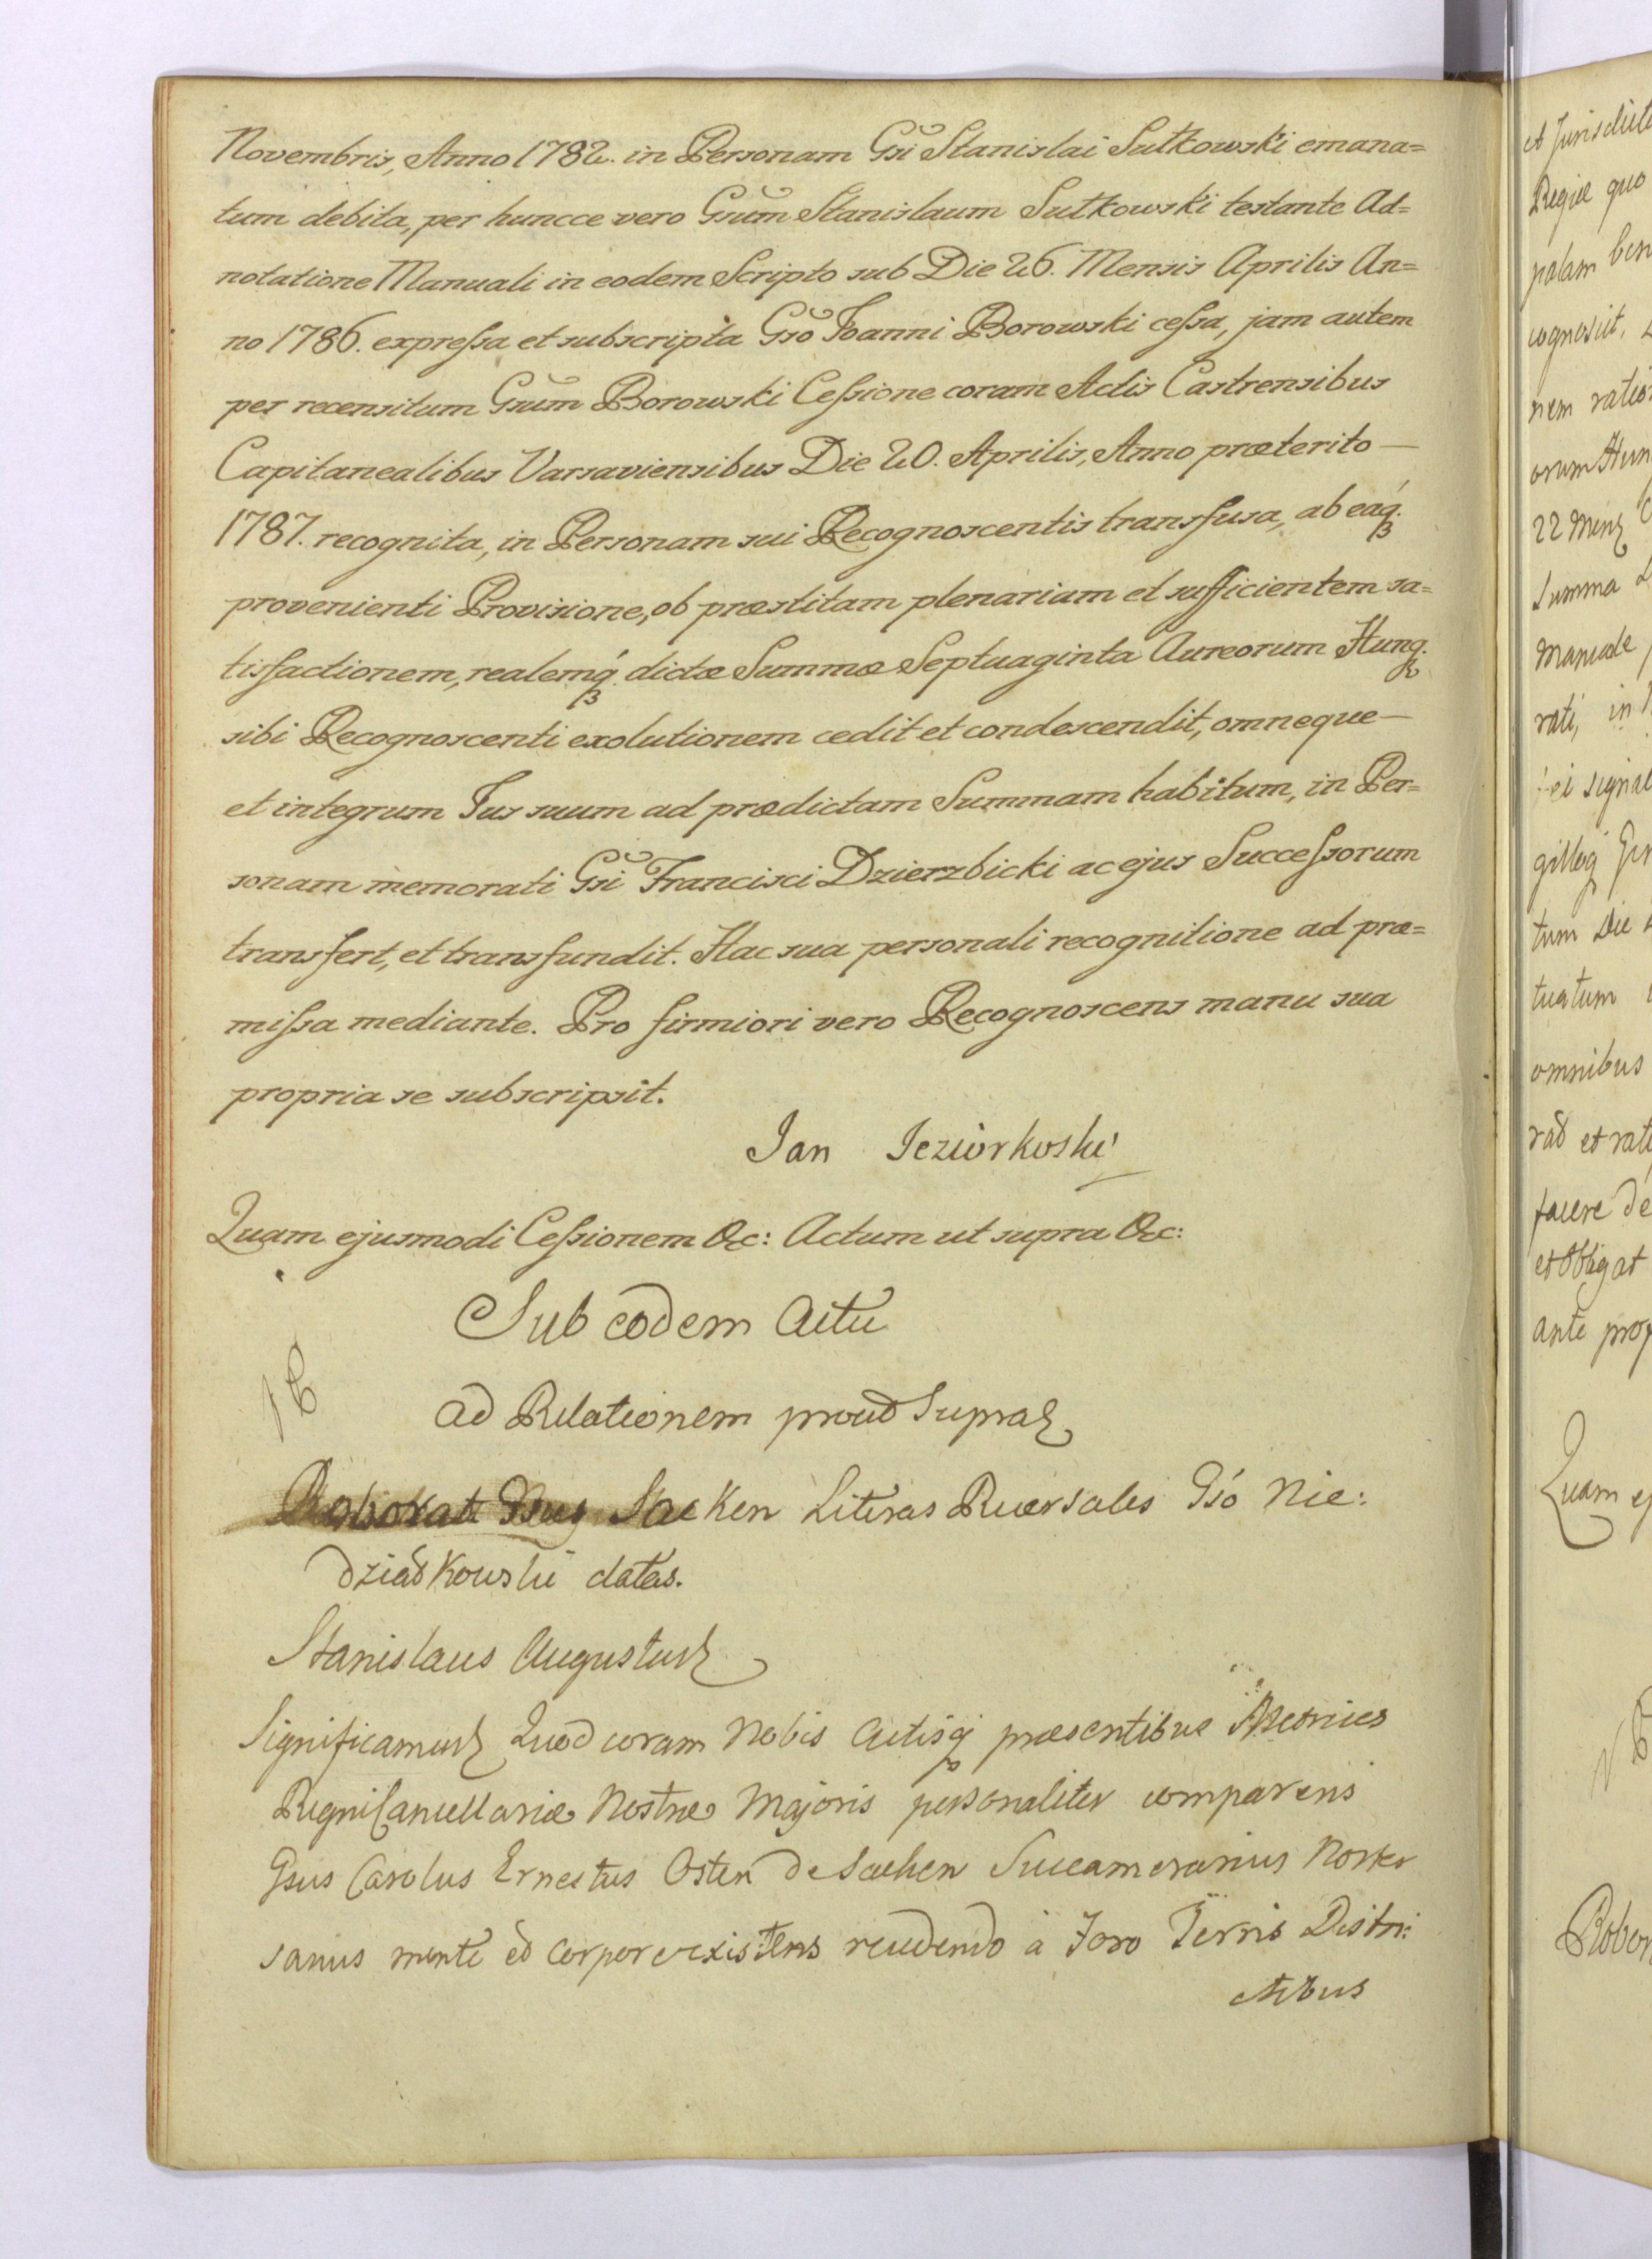 Novembris, Anno 1782. in Personam Gsi Stanislai Sutkowski emana=
tum debita, per huncce vero Gsum Stanislaum Sutkowski testante Ad=
notatione Manuali in eodem Scripto sub Die 26. Mensis Aprilis An=
no 1786. expressa et subscripta Gso Joanni Borowski cessa, jam autem
per recensitum Gsum Borowski Cessione coram Actis Castrensibus
Capitanealibus Varsaviensibus Die 20. Aprilis, Anno præterito —
1787. recognita, in Personam sui Recognoscentis transfusa, ab eáq.
provenienti Provisione, ob præstitam plenariam et sufficientem sa=
tisfactionem, realemq́ dictæ Summæ Septuaginta Aureorum Hung.
sibi Recognoscenti exolutionem cedit et condescendit, omneque —
et integrum Jus suum ad prædictam Summam habitum, in Per=
sonam memorati Gsi Francisci Dzierzbicki ac ejus Successorum
transfert, et transfundit. Hac sua personali recognitione ad præ=
missa mediante. Pro firmiori vero Recognoscens manu sua
propria se subscripsit.
Jan Jeziorkoski
Quam ejusmodi Cessionem &c: Actum ut supra &c:
Sub eodem Actu
ad Relationem prout Supra
Roborat Gsus Sacken Literas Reversales Gsó Nie:
dziadkowski datas.
Stanislaus Augustus
Significamus Quod coram Nobis Actisq præsentibus Metrices
Regni Cancellariæ Nostræ Majoris personaliter comparens
Gsus Carolus Ernestus Osten de Sacken Succamerarius Noster
sanus mente et corpore existens recedendo à Foro Terris Distri:
ctibus
et Jurisdicti
Regiæ quo
palam
cognovit.
nem ratio
orum Hun
22 Mens
Summa
Manuale
rati, in
ei signat
tum Die
tuatum
omnibus
rat et rati
facere de
et Obligat
ante prop
Quam ej
Robor